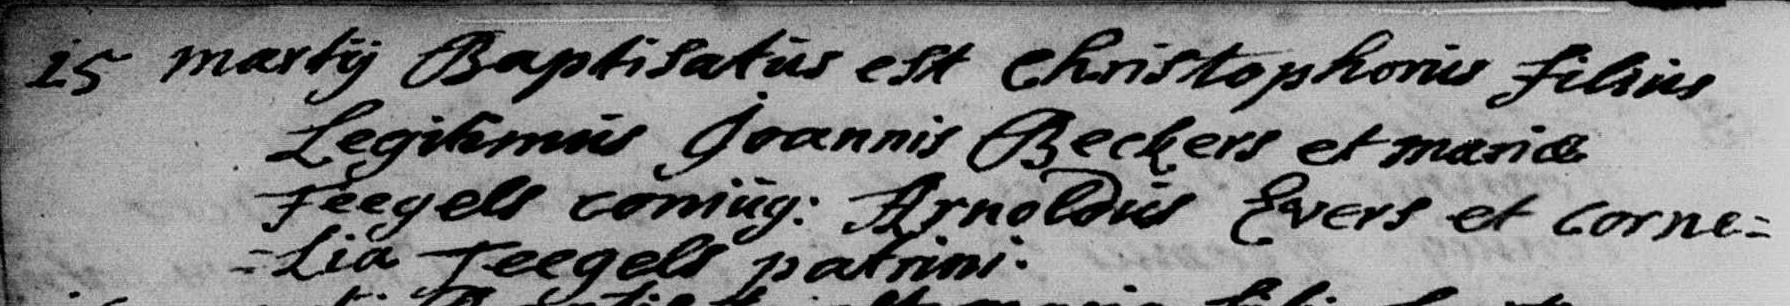 15 martij Baptisatus est Christophorus filius
Legitimus Joannis Beckers et mariæ
Teegels coniúg: Arnoldus Evers et corne=
=Lia Teegels patrini.